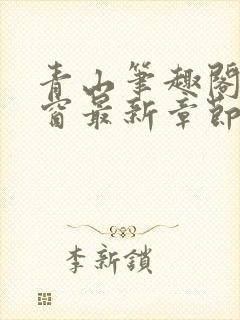 青山筆趣閣
窗最新章節
李新鎖